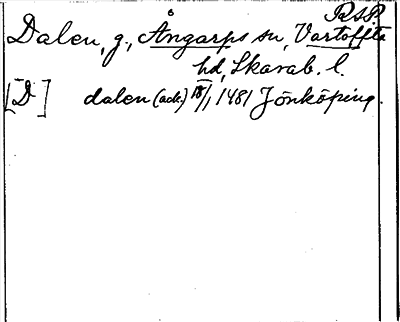 Ra. S.P.
Dalen, g., Ångarps sn, Vartofta
hd, Skarab. l.
[D] dalen (ack.) 18/1 1481 Jönköping.